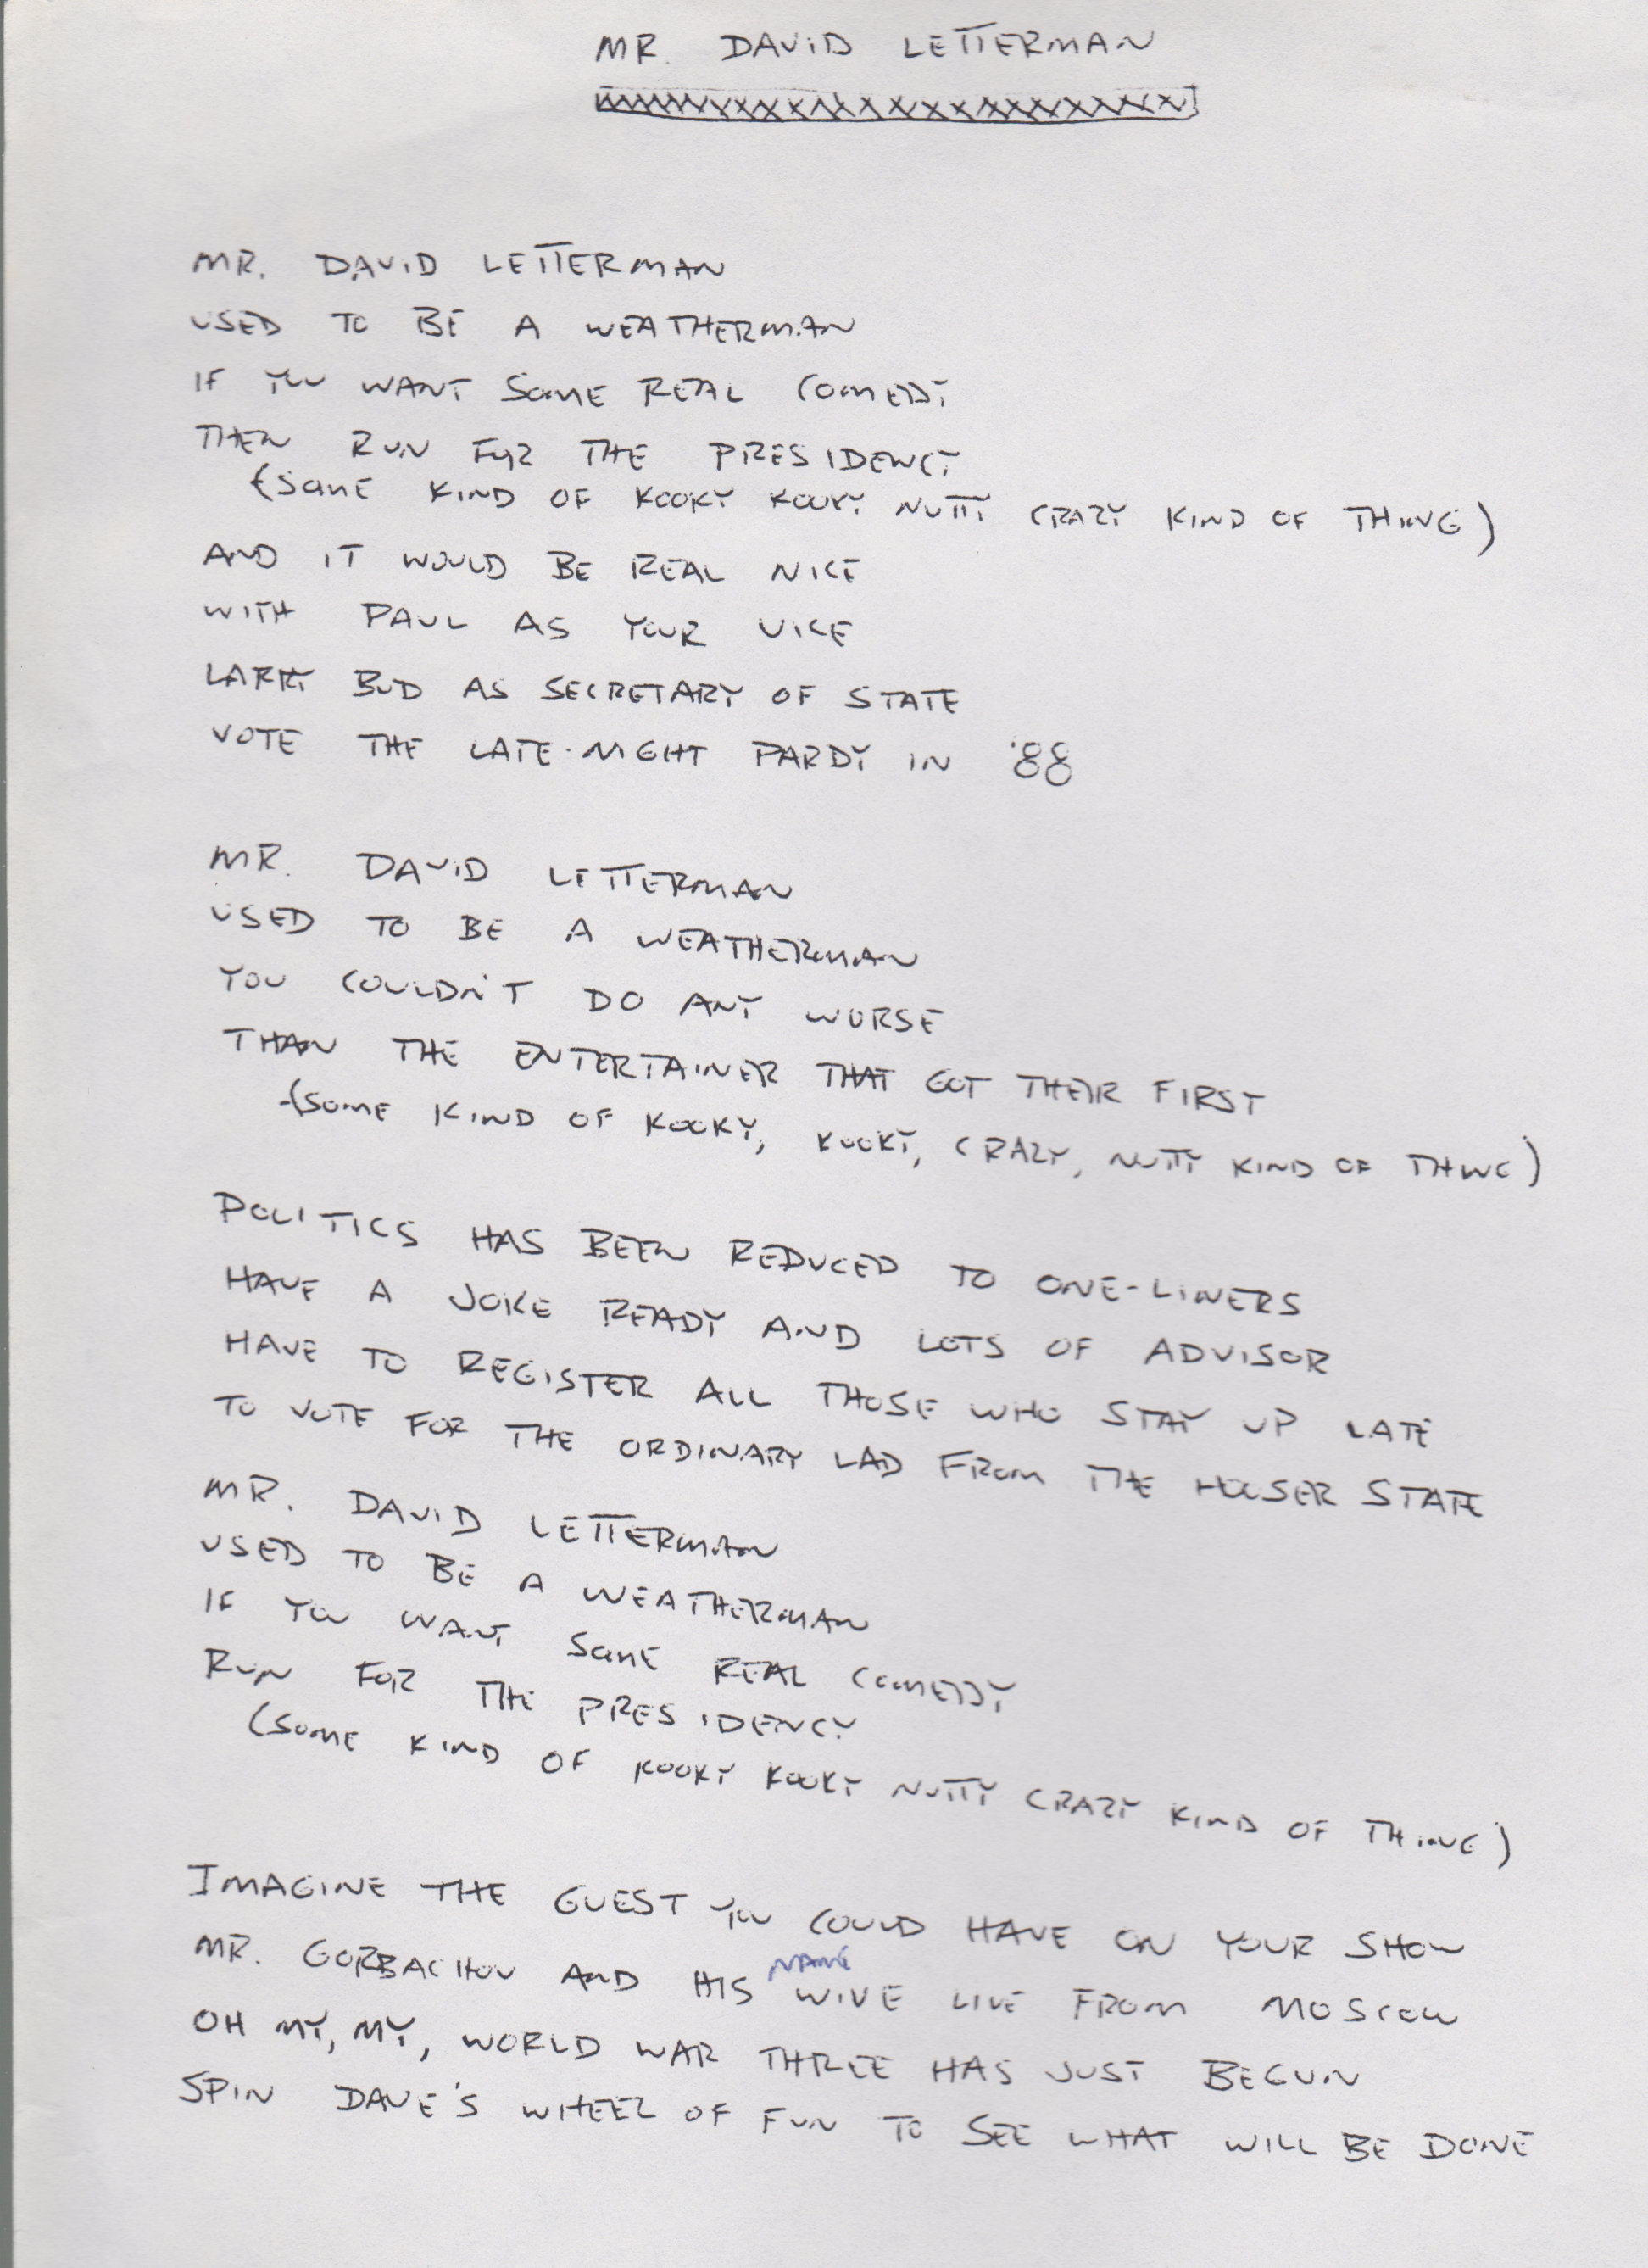 MR. DAVID LETTERMAN
MR. DAVID LETTERMAN
USED TO BE A WEATHERMAN
IF YOU WANT SOME REAL COMEDY
THEN RUN FOR THE PRESIDENCY
(SOME KIND OF KOOKY KOOKY NUTTY CRAZY KIND OF THING)
AND IT WOULD BE REAL NICE
WITH PAUL AS YOUR VICE
LARRY BUD AS SECRETARY OF STATE
VOTE THE LATE-NIGHT PARDY IN '88
MR. DAVID LETTERMAN
USED TO BE A WEATHERMAN
YOU COULDN'T DO ANY WORSE
THAN THE ENTERTAINER THAT GOT THEIR FIRST
(SOME KIND OF KOOKY, KOOKY, CRAZY, NUTTY KIND OF THING)
POLITICS HAS BEEN REDUCED TO ONE-LINERS
HAVE A JOKE READY AND LOTS OF ADVISOR
HAVE TO REGISTER ALL THOSE WHO STAY UP LATE
TO VOTE FOR THE ORDINARY LAD FROM THE HOOSER STATE
MR. DAVID LETTERMAN
USED TO BE A WEATHERMAN
IF YOU WANT SOME REAL COMEDY
RUN FOR THE PRESIDENCY
(SOME KIND OF KOOKY KOOKY NUTTY CRAZY KIND OF THING)
IMAGINE THE GUEST YOU COULD HAVE ON YOUR SHOW
NAME
MR. GORBACHOV AND HIS WIVE LIVE FROM MOSCOW
OH MY, MY, WORLD WAR THREE HAS JUST BEGUN
SPIN DAVE'S WHEEL OF FUN TO SEE WHAT WILL BE DONE